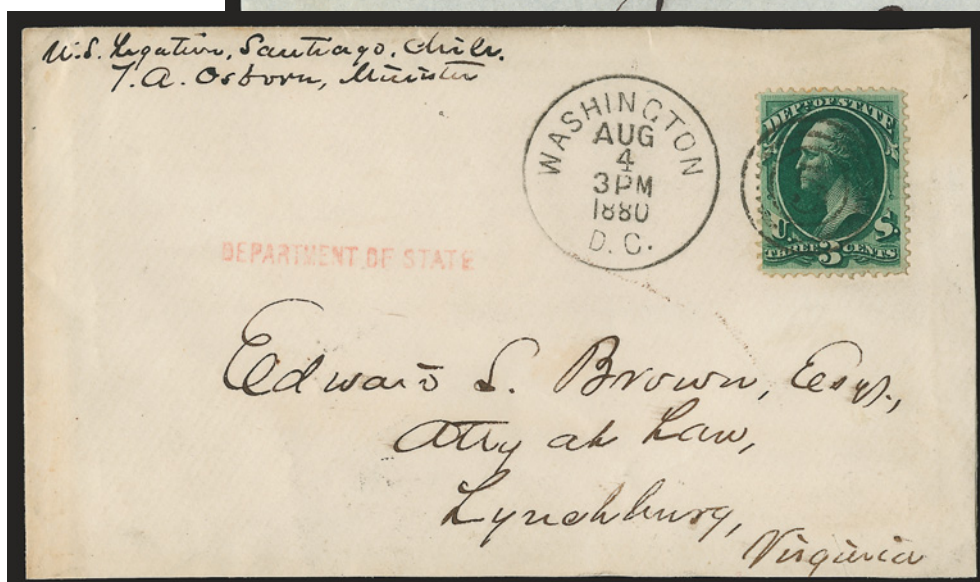 U.S. Legation, Santiago, Chile.
T. A. Osborn, Minister
WASHINGTON
AUG
4
3PM
1880
D.C.
DEP'T OF STATE
U. S.
THREE 3 CENTS
DEPARTMENT OF STATE
Edward S. Brown, Esqr.,
Atty at Law,
Lynchburg,
Virginia